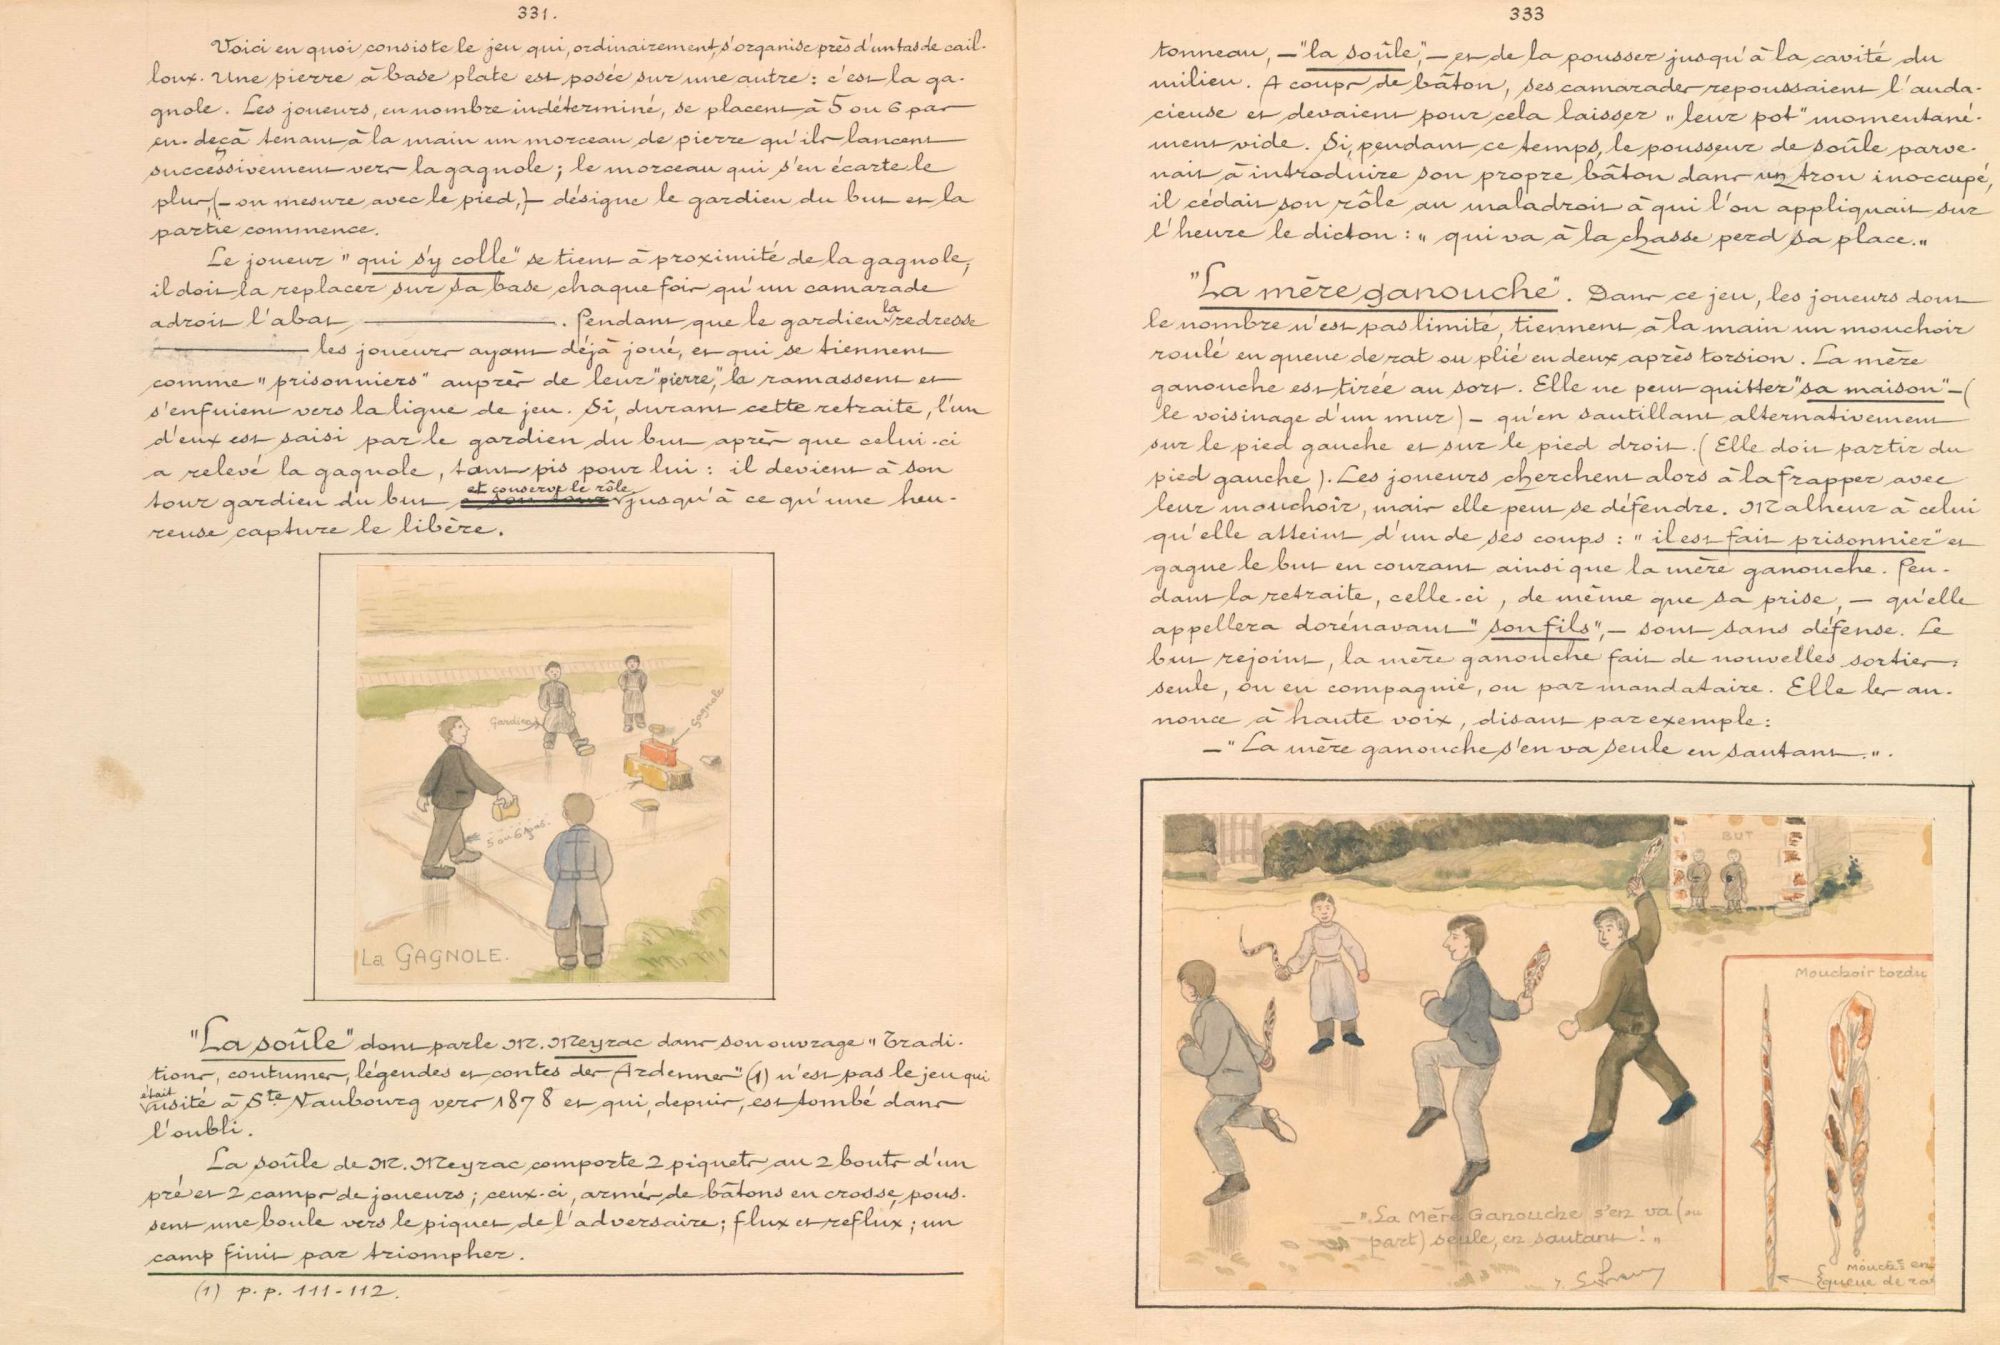 331.
Voici en quoi consiste le jeu qui, ordinairement, s'organise près d'un tas de cail-
loux. Une pierre à base plate est posée sur une autre : c'est la ga-
gnole. Les joueurs, en nombre indéterminé, se placent à 5 ou 6 pas
en-deçà tenant à la main un morceau de pierre qu'ils lancent
successivement vers la gagnole ; le morceau qui s'en écarte le
plus, (- on mesure avec le pied,)- désigne le gardien du but et la
partie commence.
Le joueur "qui s'y colle" se tient à proximité de la gagnole,
il doit la replacer sur sa base chaque fois qu'un camarade
adroit l'abat. Pendant que le gardien la redresse
les joueurs ayant déjà joué, et qui se tiennent
comme "prisonniers" auprès de leur "pierre," la ramassent et
s'enfuient vers la ligne de jeu. Si, durant cette retraite, l'un
d'eux est saisi par le gardien du but après que celui-ci
a relevé la gagnole, tant pis pour lui : il devient à son
tour gardien du but et conserve le rôle jusqu'à ce qu'une heu-
reuse capture le libère.
Gardien
Gagnole
5 ou 6 pas.
La GAGNOLE.
"La soûle" dont parle M. Meyrac dans son ouvrage "Tradi-
tions, coutumes, légendes et contes des Ardennes" (1) n'est pas le jeu qui
était usité à Ste Vaubourg vers 1878 et qui, depuis, est tombé dans
l'oubli.
La soûle de M. Meyrac comporte 2 piquets au 2 bouts d'un
pré et 2 camps de joueurs ; ceux-ci, armés de bâtons en crosse, pous-
sent une boule vers le piquet de l'adversaire ; flux et reflux ; un
camp finit par triompher.
(1) p.p. 111-112.
333
tonneau, - "la soûle", - et de la pousser jusqu'à la cavité du
milieu. A coups de bâton, ses camarades repoussaient l'auda-
cieuse et devaient pour cela laisser "leur pot" momentané-
ment vide. Si, pendant ce temps, le pousseur de soûle parve-
nait à introduire son propre bâton dans un trou inoccupé,
il cédait son rôle au maladroit à qui l'on appliquait sur
l'heure le dicton : "qui va à la chasse perd sa place."
"La mère ganouche". Dans ce jeu, les joueurs dont
le nombre n'est pas limité, tiennent à la main un mouchoir
roulé en queue de rat ou plié en deux après torsion. La mère
ganouche est tirée au sort. Elle ne peut quitter "sa maison" - (
le voisinage d'un mur) - qu'en sautillant alternativement
sur le pied gauche et sur le pied droit. (Elle doit partir du
pied gauche). Les joueurs cherchent alors à la frapper avec
leur mouchoir, mais elle peut se défendre. Malheur à celui
qu'elle atteint d'un de ses coups : "il est fait prisonnier" et
gagne le but en courant ainsi que la mère ganouche. Pen-
dant la retraite, celle-ci, de même que sa prise, - qu'elle
appellera dorénavant "son fils", - sont sans défense. Le
but rejoint, la mère ganouche fait de nouvelles sorties :
seule, ou en compagnie, ou par mandataire. Elle les an-
nonce à haute voix, disant par exemple :
- "La mère ganouche s'en va seule en sautant.".
BUT
Mouchoir tordu
- "La Mère Ganouche s'en va (ou
part) seule, en sautant ! "
Mouchr en
queue de rat